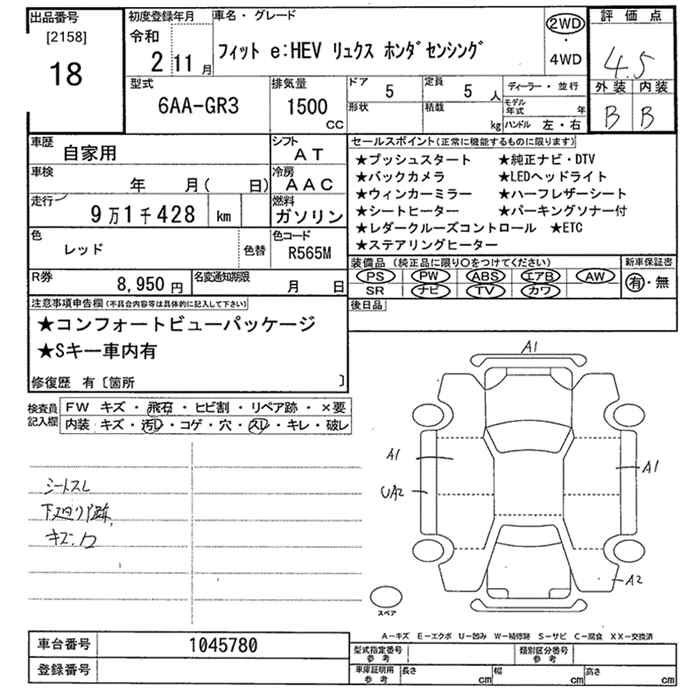 出品番号
[2158]
18
初度登録年月
令和
2 11 月
車名・グレード
フィット e:HEV リュクス ホンダセンシング
2WD
・
4WD
評価点
4.5
外装 内装
B B
型式
6AA-GR3
排気量
1500
CC
ドア 5
形状
定員 5 人
積載 kg
ディーラー・並行
モデル年式 年
ハンドル 左・右
車歴 自家用
シフト AT
車検 年 月( 日)
冷房 AAC
走行 9万1千428 km
燃料 ガソリン
色 レッド 色替
色コード R565M
R券 8,950円
名変通知期限 月 日
セールスポイント(正常に機能するものに限ります)
★プッシュスタート ★純正ナビ・DTV
★バックカメラ ★LEDヘッドライト
★ウィンカーミラー ★ハーフレザーシート
★シートヒーター ★パーキングソナー付
★レダークルーズコントロール ★ETC
★ステアリングヒーター
装備品(純正品に限り○をつけてください)
PS PW ABS エアB AW
SR ナビ TV カワ
新車保証書
有・無
後日品
注意事項申告欄(不具合内容等は具体的に記入して下さい)
★コンフォートビューパッケージ
★Sキー車内有
修復歴 有〔箇所 〕
検査員記入欄
FW キズ・飛石・ヒビ割・リペア跡・×要
内装 キズ・汚レ・コゲ・穴・スレ・キレ・破レ
シートスレ
下廻り
キズ・
A1
A1
UA2
A1
A2
スペア
A-キズ E-エクボ U-凹み W-補修跡 S-サビ C-腐食 XX-交換済
車台番号 1045780
登録番号
型式指定番号 参考
類別区分番号 参考
車庫証明用 参考
長さ cm
幅 cm
高さ cm